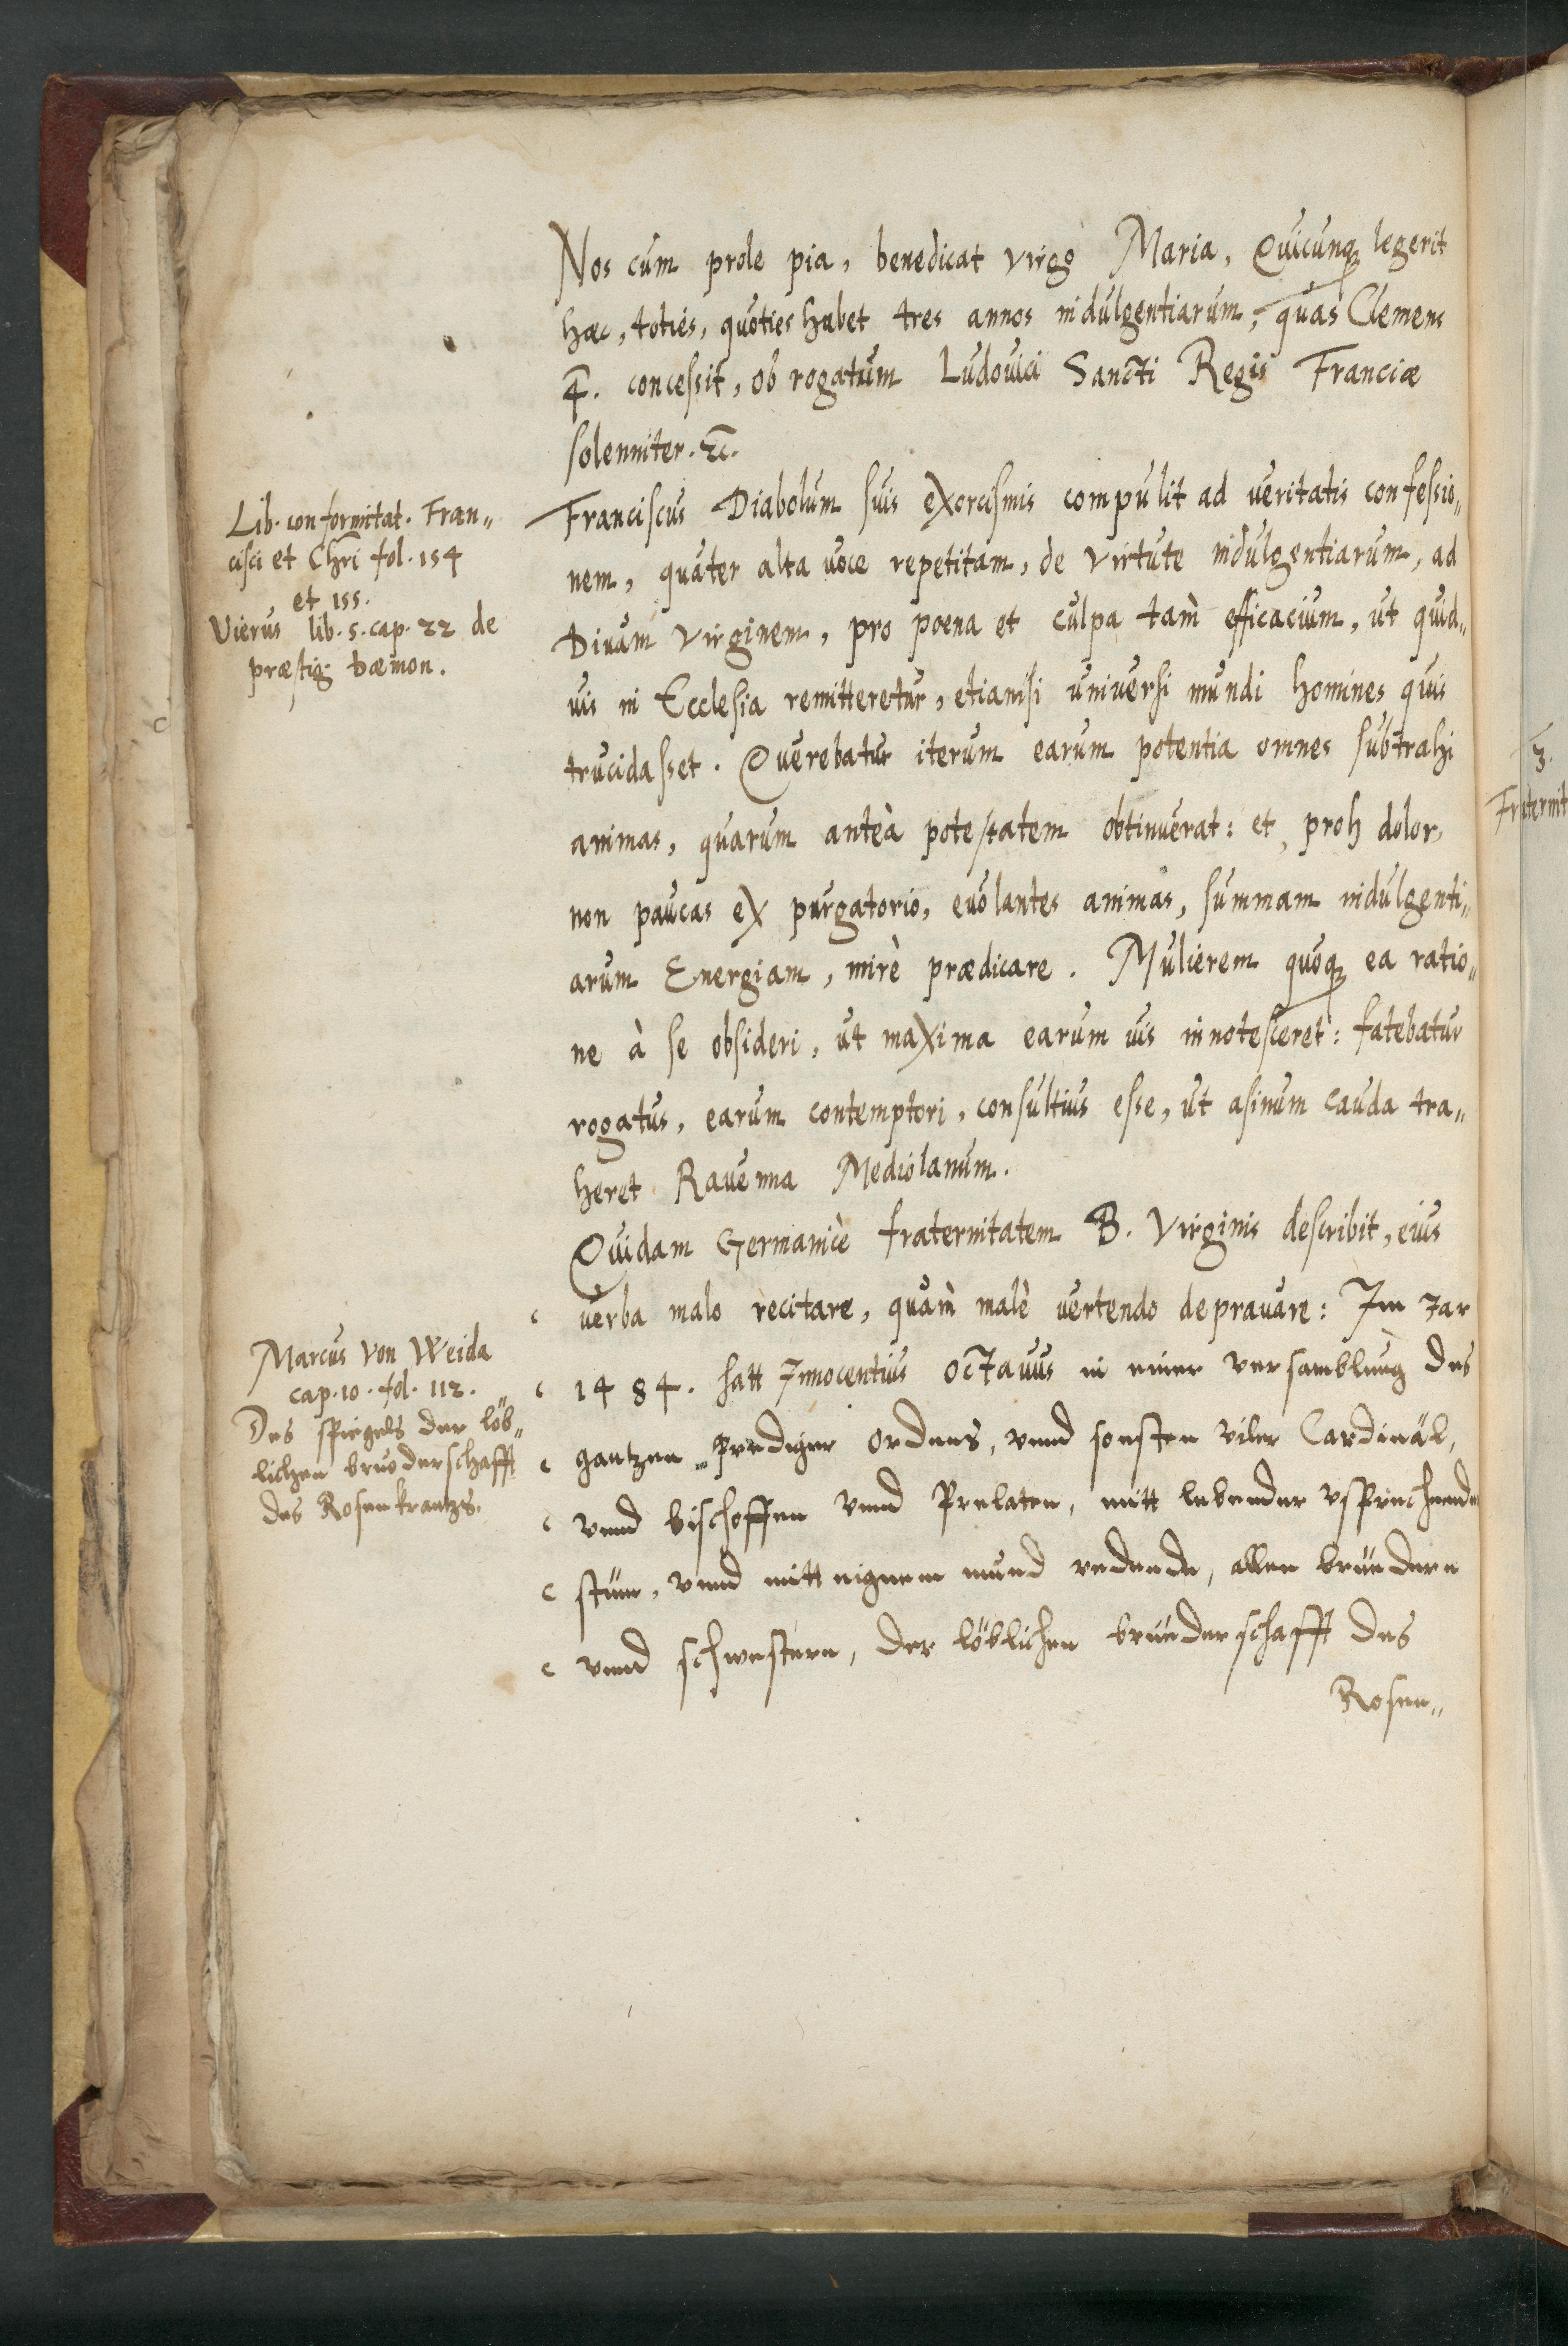 Nos cum prole pia, benedicat virgo Maria, Quicunq legerit
hæc, toties, quoties habet tres annos indulgentiarum, quas Clemens
4. concessit, ob rogatum Ludouici Sancti Regis Franciæ
solenniter. &c.
Lib. conformitat. Fran„
cisci et Chri fol. 154
et 155.
Vierus lib. 5. cap. 22 de
præstig. dæmon.
Franciscus Diabolum suis exorcismis compulit ad veritatis confessio„
nem, quater alta voce repetitam, de virtute indulgentiarum, ad
Diuam Virginem, pro poena et culpa tam efficacium, ut quid„
uis in Ecclesia remitteretur, etiamsi universi mundi homines quis
trucidasset. Querebatur iterum earum potentia omnes subtrahi
animas, quarum anteà potestatem obtinuerat: et, proh dolor,
non paucas ex purgatorio, euolantes animas, summam indulgenti„
arum Energiam, mirè prædicare. Mulierem quoq ea ratio„
ne à se obsideri, ut maxima earum uis innotesceret: fatebatur
rogatus, earum contemptori, consultius esse, ut asinum cauda tra„
heret Rauenna Mediolanum.
Quidam Germanicè fraternitatem B. Virginis describit, eius
verba malo recitare, quàm malè vertendo deprauare: Im Jar
Marcus von Weida
cap. 10. fol. 112.
Des spiegels der löb„
lichen bruoderschafft
des Rosenkrantzs.
1484. hatt Innocentius octavus in einer versamblung des
gantzen Prediger ordens, vnnd sonsten viler Cardinäl,
vnnd bischoffen vnnd Prelaten, mitt lebender vsprechende
stim, vnnd mitt eignem mund redende, allen brüedern
vnnd schwestern, der löblichen brüederschafft des
Rosen„
3.
Fraternit